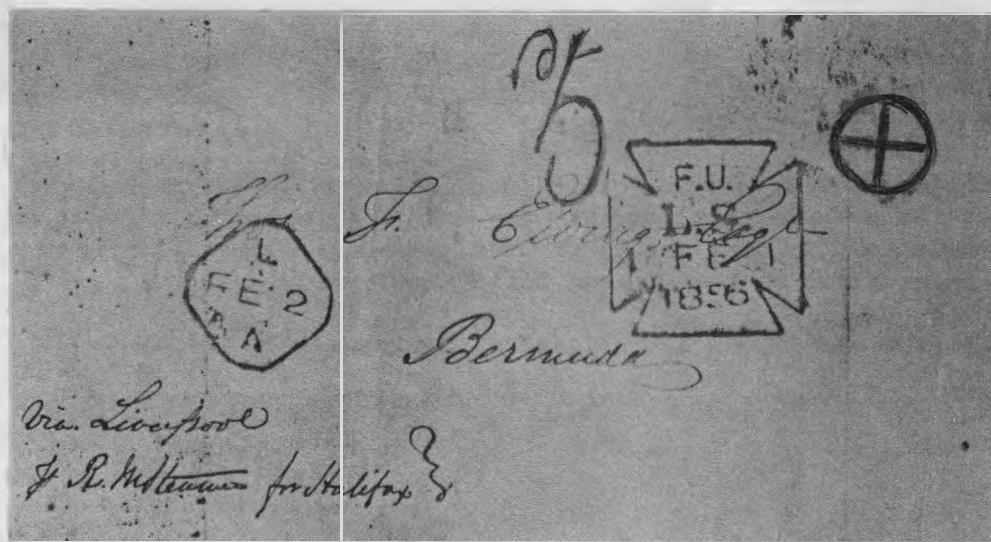 F.U.
L.S
1 FE 1
1856
F. Ewing Esqr
L
FE 2
A
Bermuda
via Liverpool
R. M Steamer for Halifax